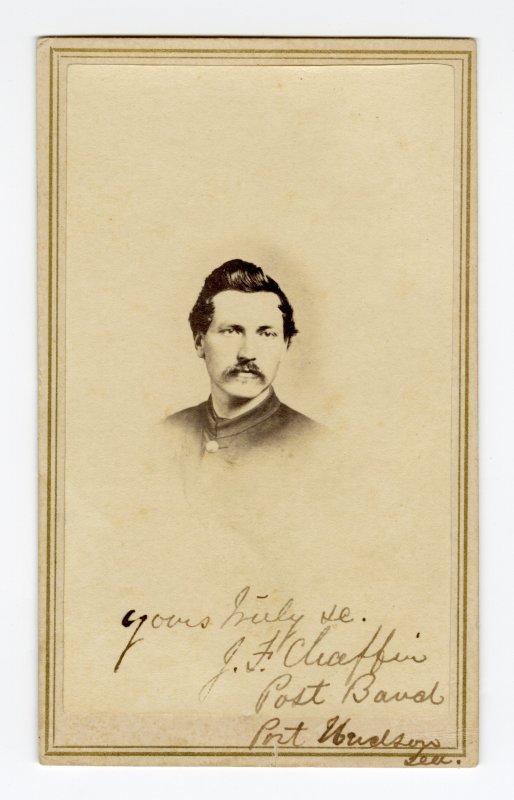 Yours Truly &c.
J. F. Chaffin
Post Band
Port Hudson
La.